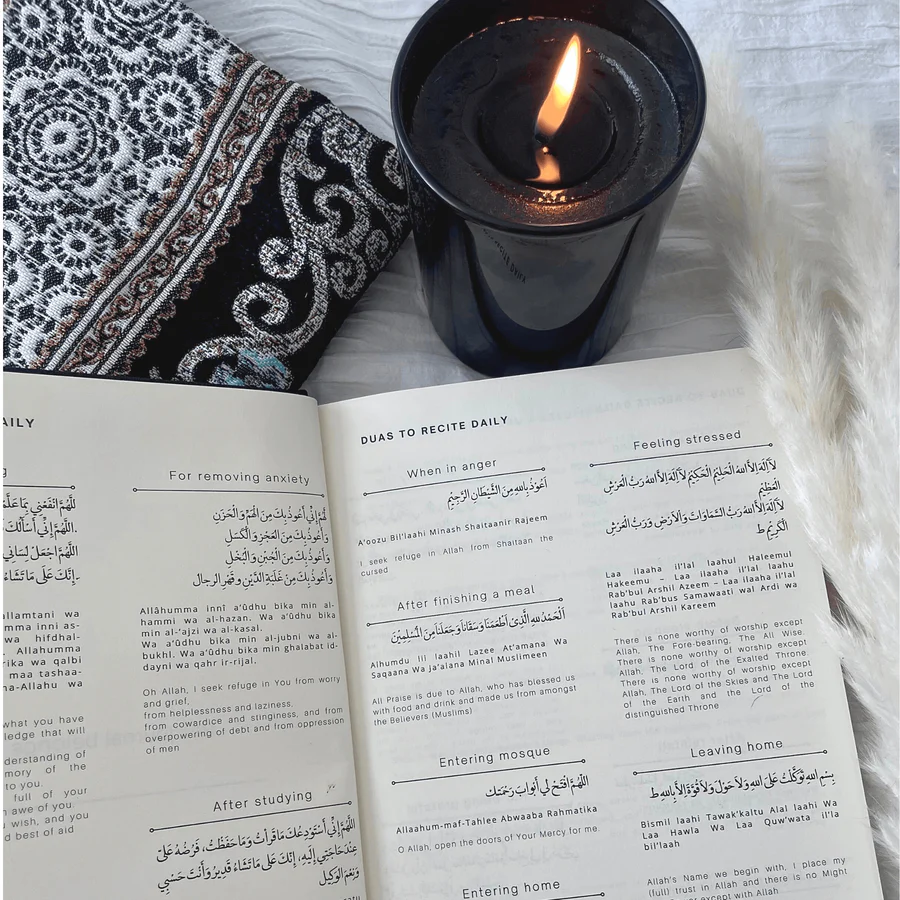 AILY
g
للَّهُمَّ انْفَعْنِي بِمَا عَلَّمْ
اللَّهُمَّ إِنِّي أَسْأَلُكَ
اللَّهُمَّ اجْعَلْ لِسَانِي
إِنَّكَ عَلَى مَا تَشَاءُ
allamtani wa
inni as-
hifdhal-
Allahumma
rika wa qalbi
maa tashaa-
na-Allahu wa
what you have
ledge that will
derstanding of
mory of the
to you.
full of your
n awe of you.
u wish, and you
d best of aid
For removing anxiety
إِنِّي أَعُوذُ بِكَ مِنَ الْهَمِّ وَالْحَزَنِ
وَأَعُوذُ بِكَ مِنَ الْعَجْزِ وَالْكَسَلِ
وَأَعُوذُ بِكَ مِنَ الْجُبْنِ وَالْبُخْلِ
وَأَعُوذُ بِكَ مِنْ غَلَبَةِ الدَّيْنِ وَقَهْرِ الرِّجَالِ
Allâhumma innî a'ûdhu bika min al-
hammi wa al-hazan. Wa a'ûdhu bika
min al-'ajzi wa al-kasal.
Wa a'ûdhu bika min al-jubni wa al-
bukhl. Wa a'ûdhu bika min ghalabat id-
dayni wa qahr ir-rijal.
Oh Allah, I seek refuge in You from worry
and grief,
from helplessness and laziness.
from cowardice and stinginess, and from
overpowering of debt and from oppression
of men
After studying
اللَّهُمَّ إِنِّي أَسْتَوْدِعُكَ مَا قَرَأْتُ وَمَا حَفَظْتُ، فَرُدَّهُ عَلَيَّ
عِنْدَ حَاجَتِي إِلَيْهِ، إِنَّكَ عَلَى مَا تَشَاءُ قَدِيرٌ وَأَنْتَ حَسْبِي
وَنِعْمَ الْوَكِيلُ
DUAS TO RECITE DAILY
When in anger
أَعُوذُ بِاللهِ مِنَ الشَّيْطَانِ الرَّجِيْمِ
A'oozu Bil'laahi Minash Shaitaanir Rajeem
I seek refuge in Allah from Shaitaan the
cursed
After finishing a meal
اَلْحَمْدُ لِلّٰهِ الَّذِيْ اَطْعَمَنَا وَسَقَانَا وَجَعَلَنَا مِنَ الْمُسْلِمِيْنَ
Alhumdu lil laahil Lazee At'amana Wa
Saqaana Wa ja'alana Minal Muslimeen
All Praise is due to Allah, who has blessed us
with food and drink and made us from amongst
the Believers (Muslims)
Entering mosque
اَللّٰهُمَّ افْتَحْ لِي أَبْوَابَ رَحْمَتِكَ
Allaahum-maf-Tahlee Abwaaba Rahmatika
O Allah, open the doors of Your Mercy for me.
Entering home
Feeling stressed
لَآ اِلٰهَ اِلَّا اللهُ الْحَلِيْمُ الْحَكِيْمُ لَآ اِلٰهَ اِلَّا اللهُ رَبُّ الْعَرْشِ
الْعَظِيْمِ
لَآ اِلٰهَ اِلَّا اللهُ رَبُّ السَّمَاوَاتِ وَالْاَرْضِ وَرَبُّ الْعَرْشِ
الْكَرِيْمِ ط
Laa ilaaha il'lal laahul Haleemul
Hakeemu – Laa ilaaha il'lal laahu
Rab'bul Arshil Azeem – Laa ilaaha il'lal
laahu Rab'bus Samawaati wal Ardi wa
Rab'bul Arshil Kareem
There is none worthy of worship except
Allah, The Fore-bearing, The All Wise.
There is none worthy of worship except
Allah, The Lord of the Exalted Throne.
There is none worthy of worship except
Allah, The Lord of the Skies and The Lord
of the Earth and the Lord of the
distinguished Throne
Leaving home
بِسْمِ اللهِ تَوَكَّلْتُ عَلَى اللهِ وَلَا حَوْلَ وَلَا قُوَّةَ اِلَّا بِاللهِ ط
Bismil laahi Tawak'kaltu Alal laahi Wa
Laa Hawla Wa Laa Quw'wata il'la
bil'laah
Allah's Name we begin with, I place my
(full) trust in Allah and there is no Might
except with Allah